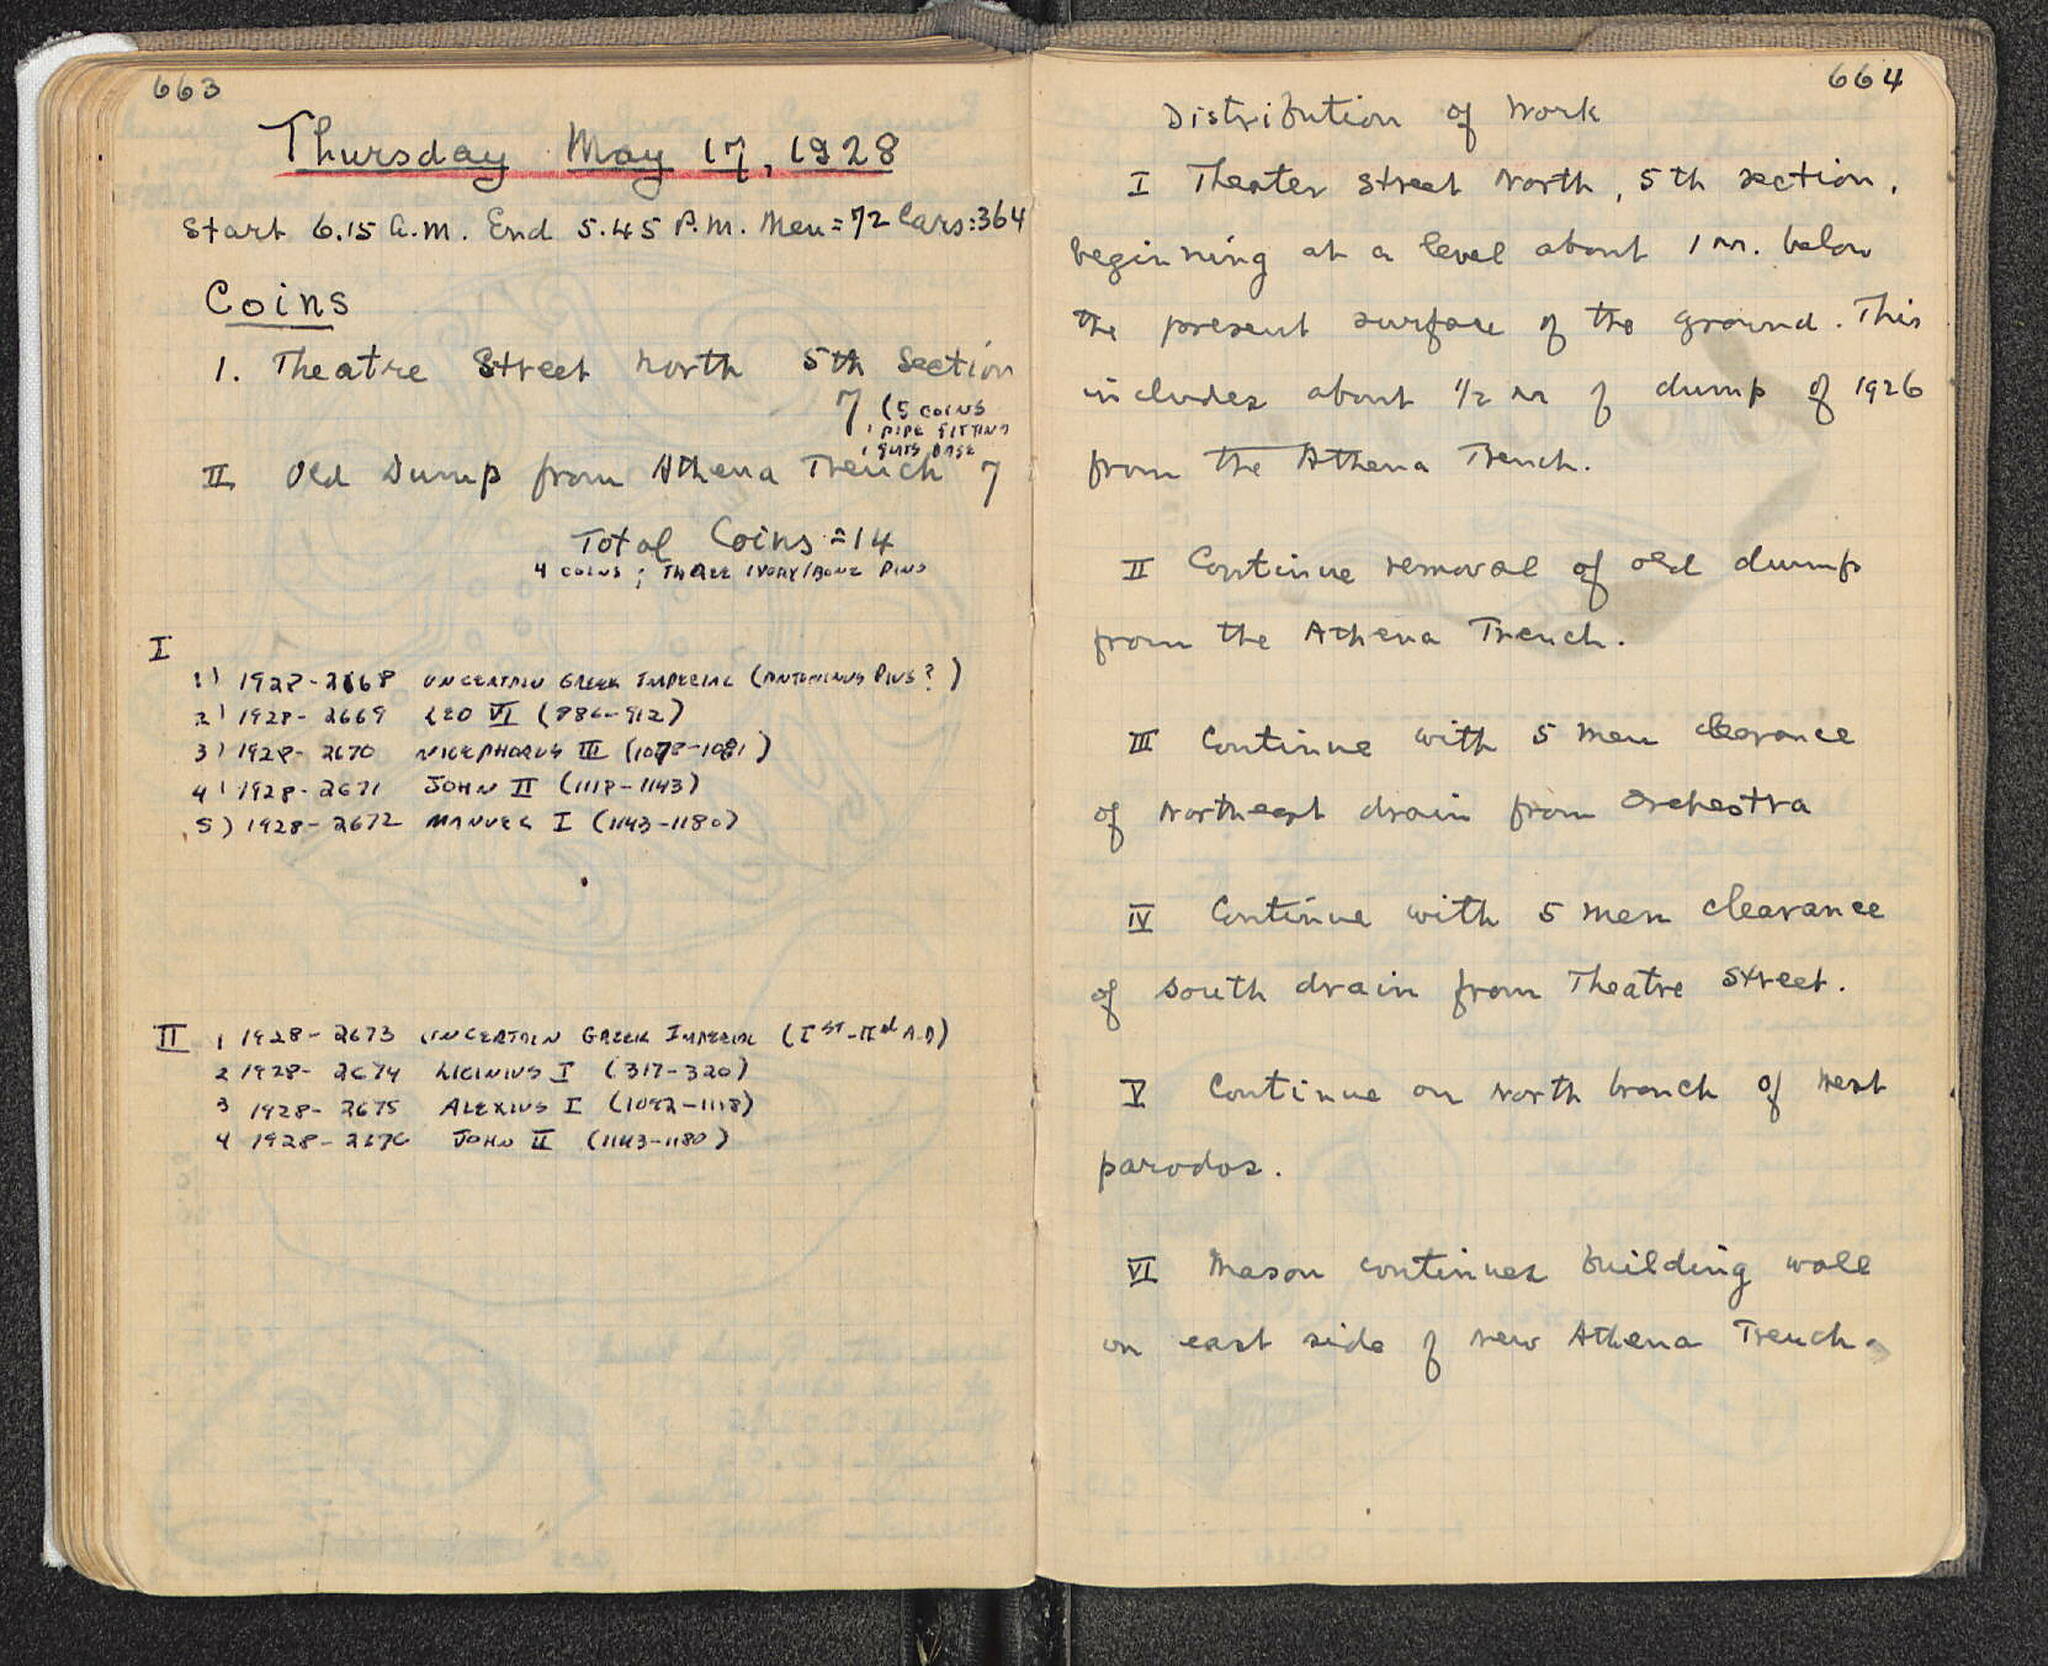 663
Thursday May 17, 1928
Start 6.15 A.M. End 5.45 P.M. Men=72 Cars:364
Coins
1. Theatre Street North 5th Section
7 (5 COINS
1 PIPE FITTING
1
II Old Dump from Athena Trench 7
Total Coins = 14
4 COINS; THREE IVORY/BONE PINS
I
1) 1928-2668 UNCERTAIN GREEK IMPERIAL (ANTONINUS PIUS?)
2) 1928-2669 LEO VI (886-912)
3) 1928-2670 NICEPHORUS III (1078-1081)
4) 1928-2671 JOHN II (1118-1143)
5) 1928-2672 MANUEL I (1143-1180)
II 1 1928-2673 UNCERTAIN GREEK IMPERIAL (Ist-IInd A.D)
2 1928-2674 LICINIUS I (317-320)
3 1928-2675 ALEXIUS I (1092-1118)
4 1928-2676 JOHN II (1143-1180)
664
Distribution of Work
I Theater Street North, 5th section,
beginning at a level about 1 m. below
the present surface of the ground. This
includes about 1/2 m of dump of 1926
from the Athena Trench.
II Continue removal of old dump
from the Athena Trench.
III Continue with 5 men clearance
of Northeast drain from Orchestra
IV Continue with 5 men clearance
of South drain from Theatre Street.
V Continue on North branch of West
parodos.
VI Mason continues building wall
on east side of new Athena Trench.